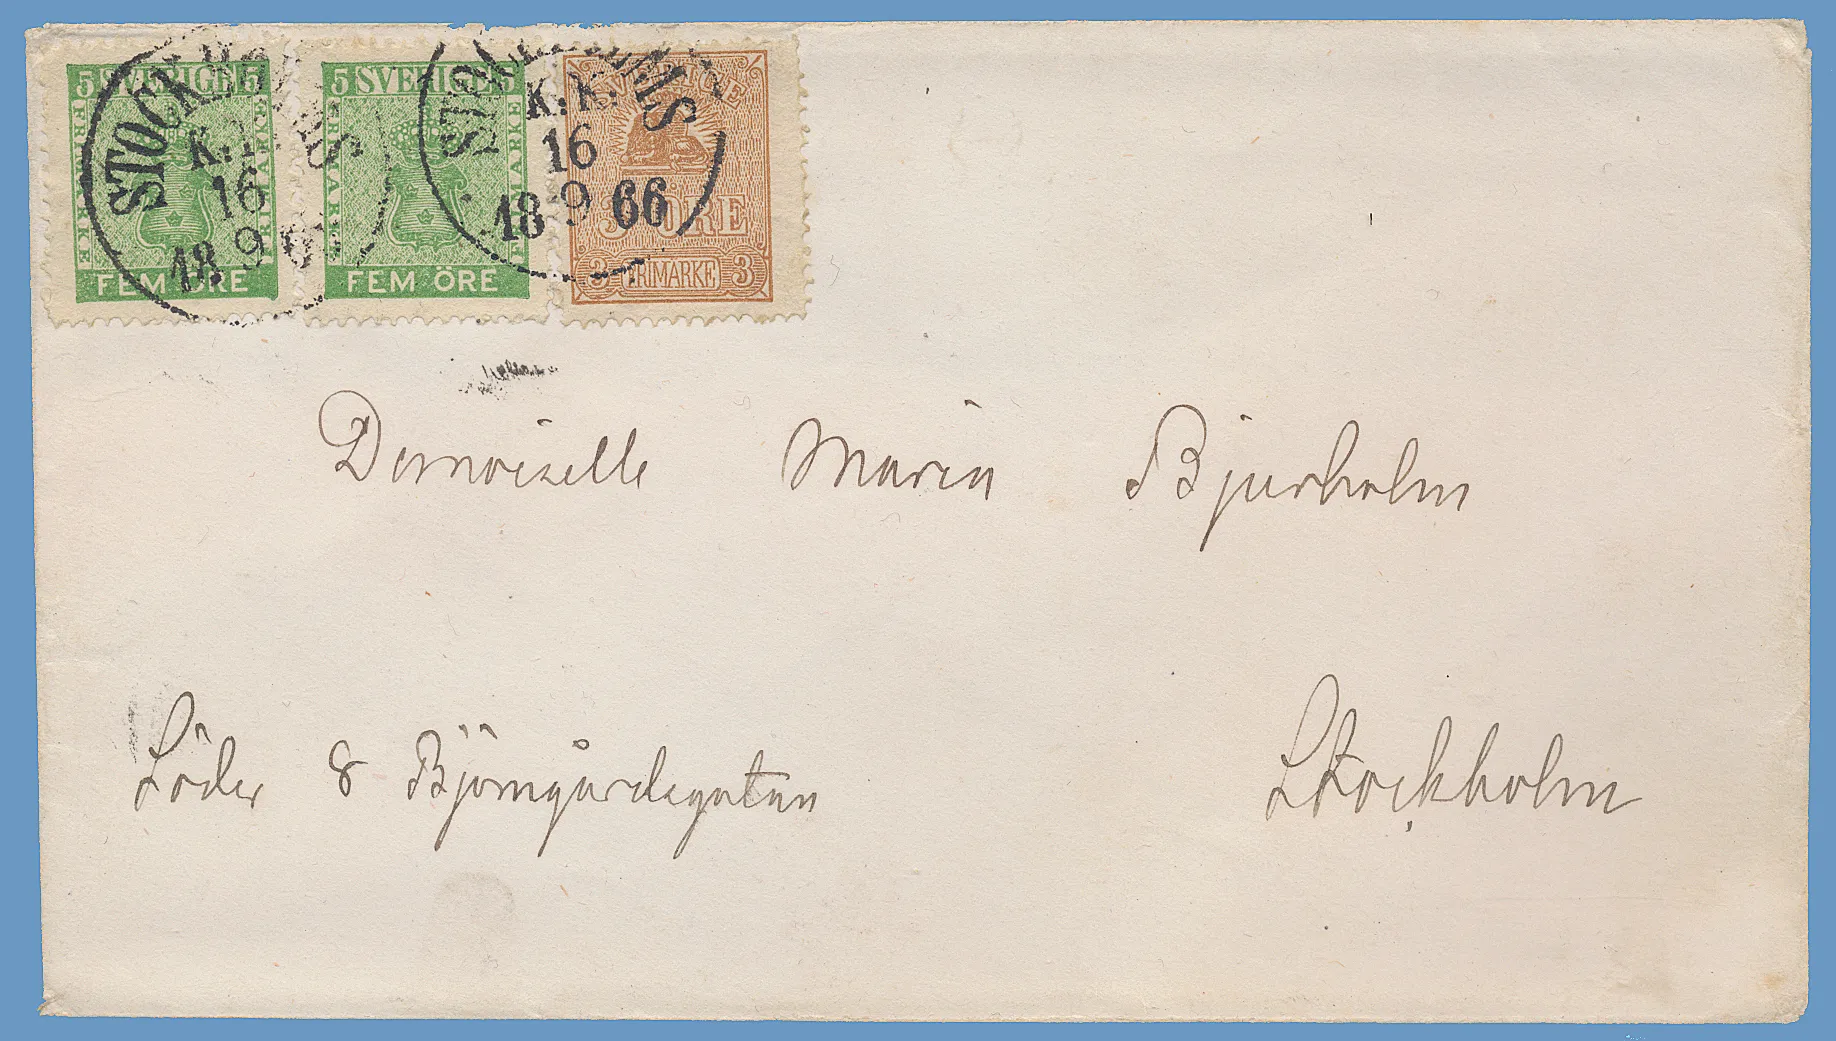 5 SVERIGE 5
FRIMÄRKE
FRIMÄRKE
FEM ÖRE
5 SVERIGE 5
FRIMÄRKE
FRIMÄRKE
FEM ÖRE
SVERIGE
3 ÖRE
3 FRIMÄRKE 3
STOCKHOLMS
K. K.
16
18 9 66
STOCKHOLMS
K. K.
16
18 9 66
Demoiselle Maria Bjurholm
Söder 8 Björngårdsgatan
Stockholm